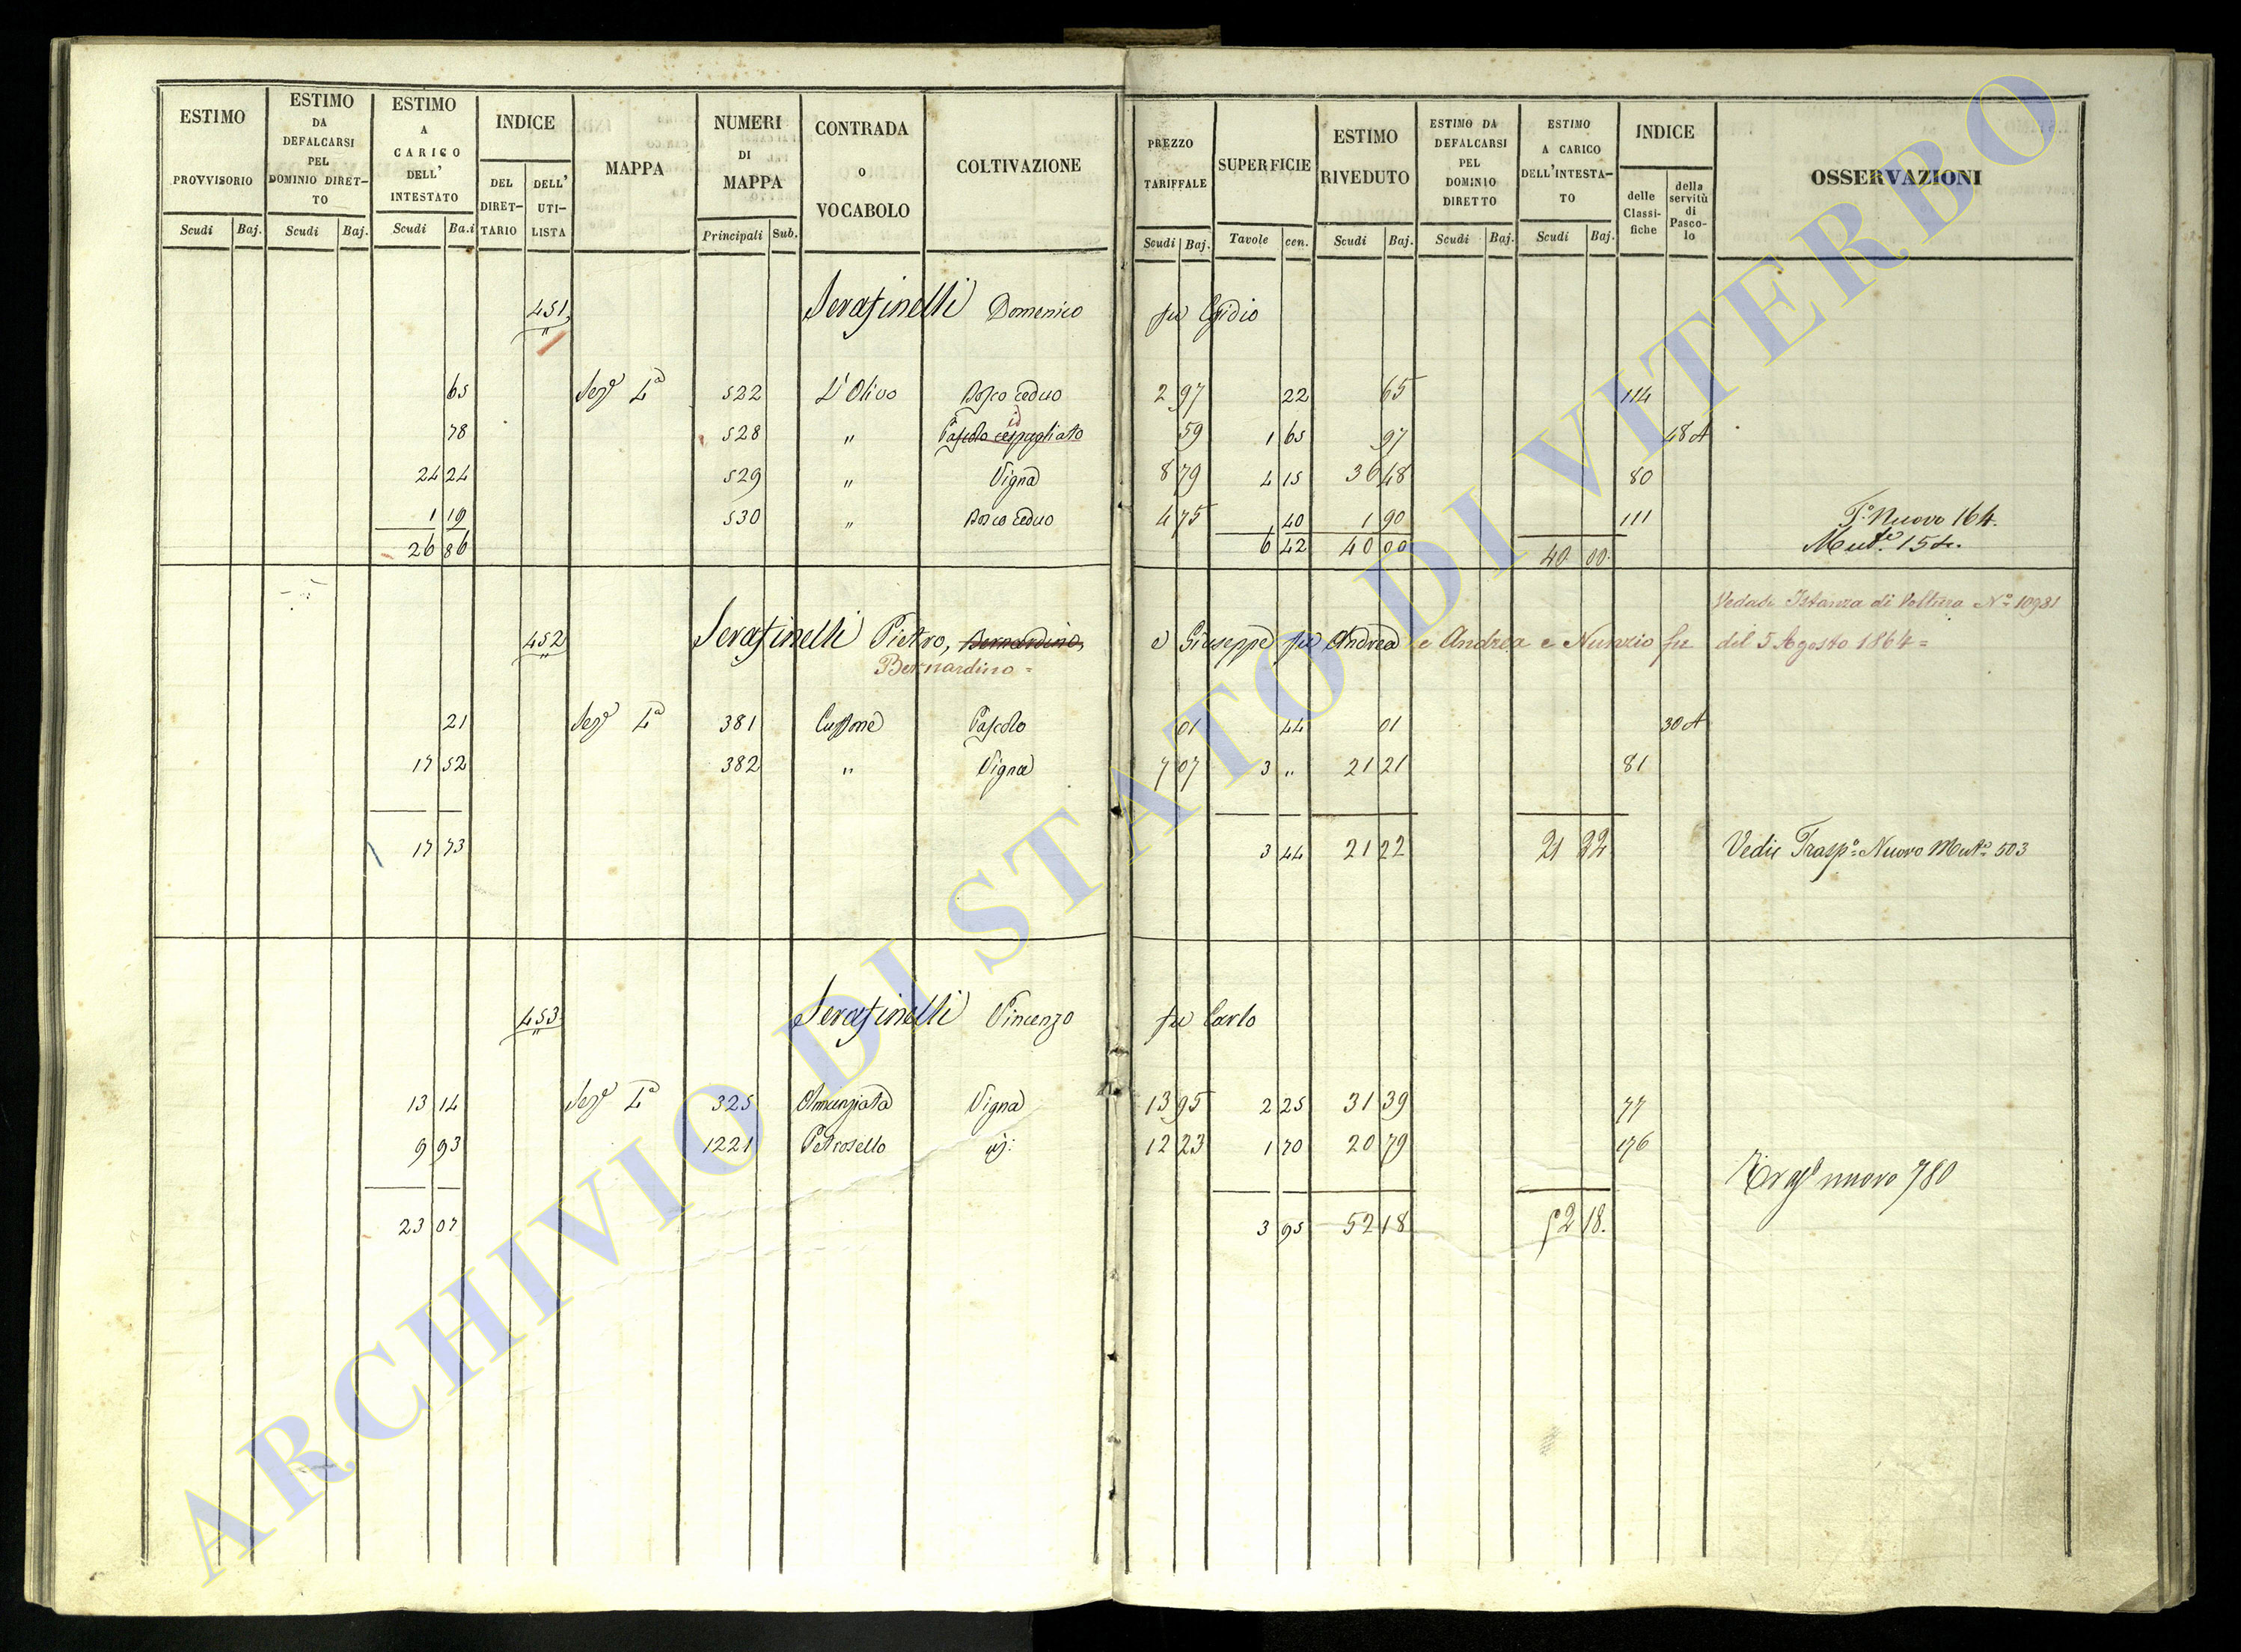 ESTIMO PROVVISORIO Scudi Baj.
ESTIMO DA DEFALCARSI PEL DOMINIO DIRET-TO Scudi Baj.
ESTIMO A CARICO DELL' INTESTATO Scudi Ba.i
INDICE DEL DIRET-TARIO DELL' UTI-LISTA
MAPPA
NUMERI DI MAPPA Principali Sub.
CONTRADA O VOCABOLO
COLTIVAZIONE
PREZZO TARIFFALE Scudi Baj.
SUPERFICIE Tavole cen.
ESTIMO RIVEDUTO Scudi Baj.
ESTIMO DA DEFALCARSI PEL DOMINIO DIRETTO Scudi Baj.
ESTIMO A CARICO DELL'INTESTA-TO Scudi Baj.
INDICE delle Classi-fiche della servitù di Pasco-lo
OSSERVAZIONI
451 Serafinelli Domenico fu Egidio
65 Sezе 4a 522 L'Olivo Bosco ceduo 2 97 22 65 114
78 528 " Pascolo cespugliato 59 1 65 97 48 A
24 24 529 " Vigna 8 79 4 15 36 48 80
1 19 530 " Bosco ceduo 4 75 40 1 90 111 T.o Nuovo 164.
26 86 6 42 40 00 40 00 Mut.e 154.
Vedasi Istanza di Voltura No 10981
452 Serafinelli Pietro, Bernardino, e Giuseppe fu Andrea e Andrea e Nunzio fu del 5 Agosto 1864=
Bernardino=
21 Seze 4a 381 Cuppone Pascolo 01 44 01 30 A
17 52 382 " Vigna 7 07 3 " 21 21 81
17 73 3 44 21 22 21 22 Vedi Trasp.o Nuovo Mut.a 503
453 Serafinelli Vincenzo fu Carlo
13 14 Seze 4a 325 Annunziata Vigna 13 95 2 25 31 39 77
9 93 1221 Petrosello id: 12 23 1 70 20 79 176
nuovo 780
23 07 3 95 52 18 52 18.
ARCHIVIO DI STATO DI VITERBO